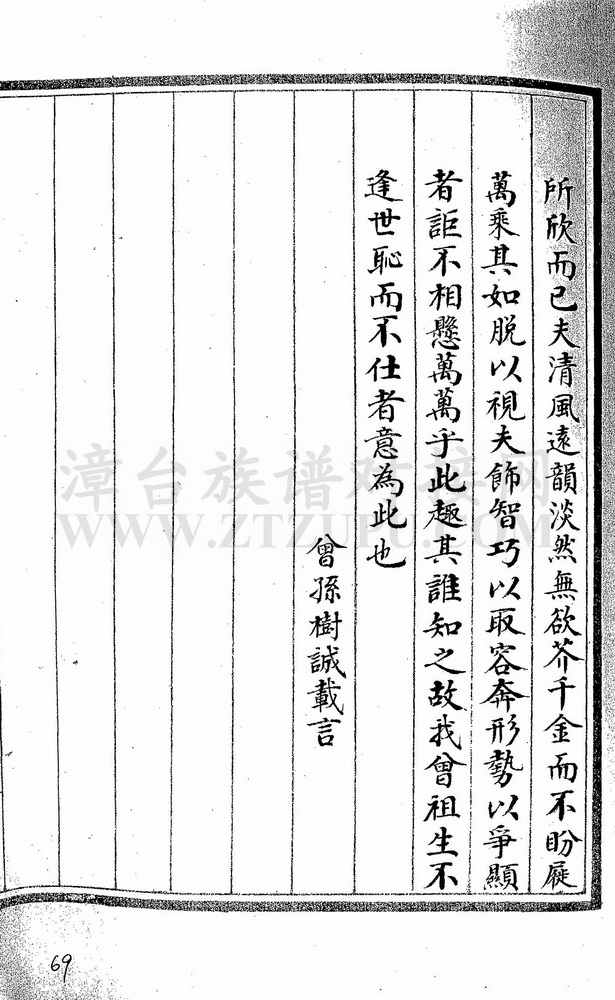 所欣而已夫清風遠韻淡然無欲芥千金而不盼屣
萬乘其如脫以視夫飾智巧以取容奔形勢以爭顯
者詎不相懸萬萬乎此趣其誰知之故我曾祖生不
逢世恥而不仕者意為此也
曾孫樹誠載言
漳台族谱对接网
WWW.ZTZUPU.COM
69